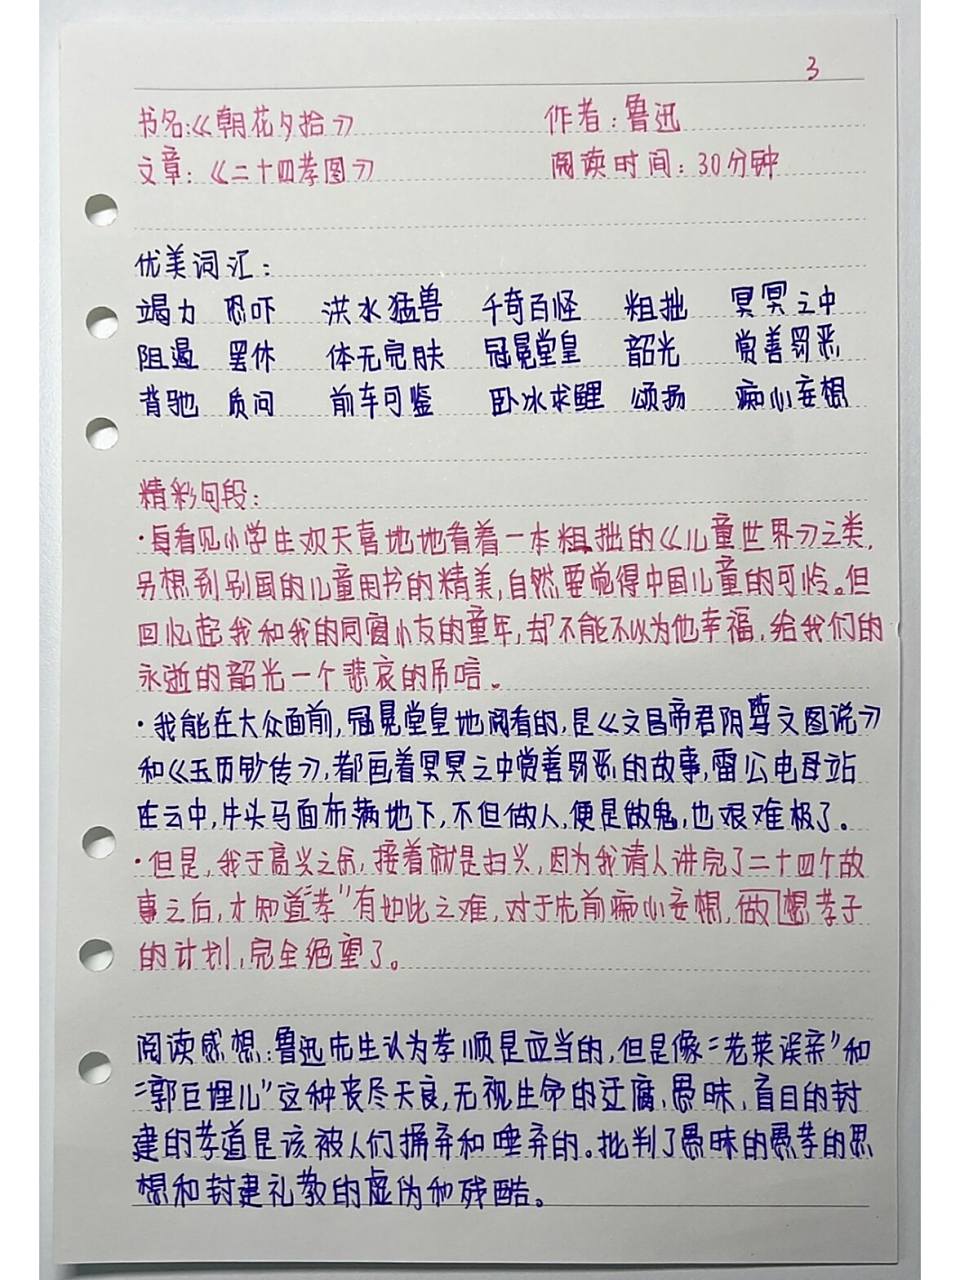 3
书名:《朝花夕拾》 作者:鲁迅
文章:《二十四孝图》 阅读时间:30分钟
优美词汇:
竭力 恐吓 洪水猛兽 千奇百怪 粗拙 冥冥之中
阻遏 罢休 体无完肤 冠冕堂皇 韶光 赏善罚恶
背驰 质问 前车可鉴 卧冰求鲤 颂扬 痴心妄想
精彩句段:
·每看见小学生欢天喜地地看着一本粗拙的《儿童世界》之类,
另想到别国的儿童用书的精美,自然要觉得中国儿童的可怜。但
回忆起我和我的同窗小友的童年,却不能不以为他幸福,给我们的
永逝的韶光一个悲哀的吊唁。
·我能在大众面前,冠冕堂皇地阅看的,是《文昌帝君阴骘文图说》
和《玉历钞传》,都画着冥冥之中赏善罚恶的故事,雷公电母站
在云中,牛头马面布满地下,不但做人,便是做鬼,也艰难极了。
·但是,我于高兴之余,接着就是扫兴,因为我请人讲完了二十四个故
事之后,才知道“孝”有如此之难,对于先前痴心妄想,做想孝子
的计划,完全绝望了。
阅读感想:鲁迅先生认为孝顺是应当的,但是像“老莱误亲”和
“郭巨埋儿”这种丧尽天良,无视生命的迂腐、愚昧、盲目的封
建的孝道是该被人们摒弃和唾弃的。批判了愚昧的愚孝的思
想和封建礼教的虚伪和残酷。